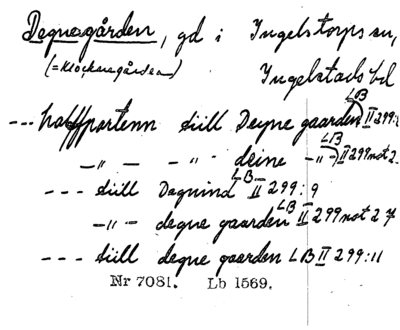 Degnegården, gd i Ingelstorps sn,
(=Klockaregården) Ingelstads hd
--- halffpartenn till Degne gaarden LB II 299:
—„— — —„— deine —„— LB II 299 not 2.
--- till Degnind LB II 299:9
—„— degne gaarden LB II 299 not 27
--- till degne gaarden LB II 299:11
Nr 7081. Lb 1569.